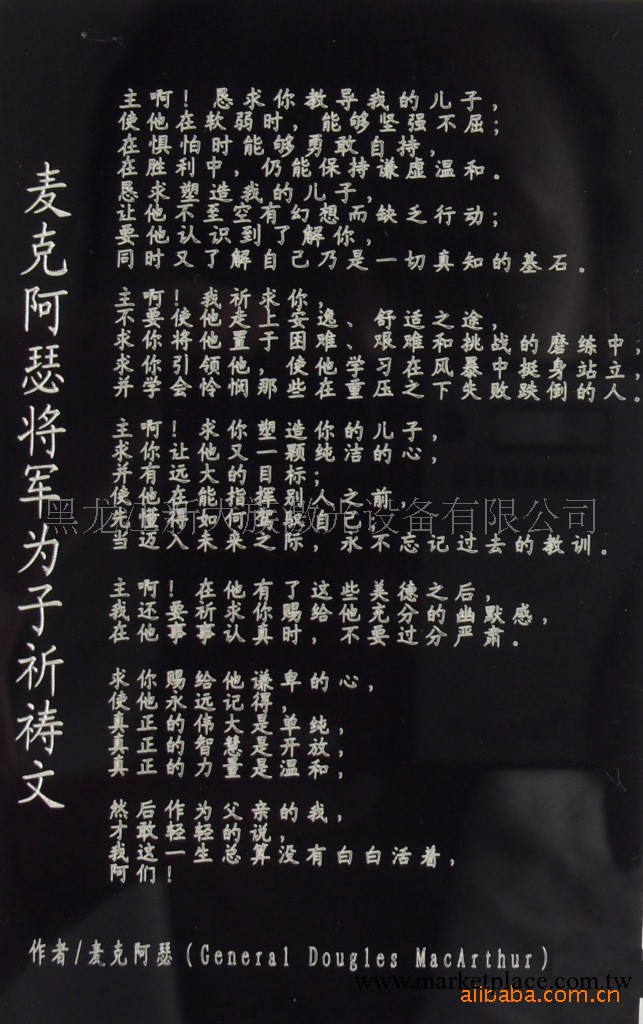 麦克阿瑟将军为子祈祷文
主啊！恳求你教导我的儿子，
使他在软弱时，能够坚强不屈；
在惧怕时能够勇敢自持，
在胜利中，仍能保持谦虚温和。
恳求塑造我的儿子，
让他不至空有幻想而缺乏行动；
要他认识到了解你，
同时又了解自己乃是一切真知的基石。
主啊！我祈求你，
不要使他走上安逸、舒适之途，
求你将他置于困难、艰难和挑战的磨练中，
求你引领他，使他学习在风暴中挺身站立，
并学会怜悯那些在重压之下失败跌倒的人。
主啊！求你塑造你的儿子，
求你让他又一颗纯洁的心，
并有远大的目标；
使他能指挥别人之前，
先懂得如何驾驭自己，
当迈入未来之际，永不忘记过去的教训。
主啊！在他有了这些美德之后，
我还要祈求你赐给他充分的幽默感，
在他事事认真时，不要过分严肃。
求你赐给他谦卑的心，
使他永远记得，
真正的伟大是单纯，
真正的智慧是开放，
真正的力量是温和，
然后作为父亲的我，
才敢轻轻的说，
我这一生总算没有白白活着，
阿们！
作者/麦克阿瑟(General Dougles MacArthur)
黑龙江新大族激光设备有限公司
www.marketplace.com.tw
alibaba.com.cn